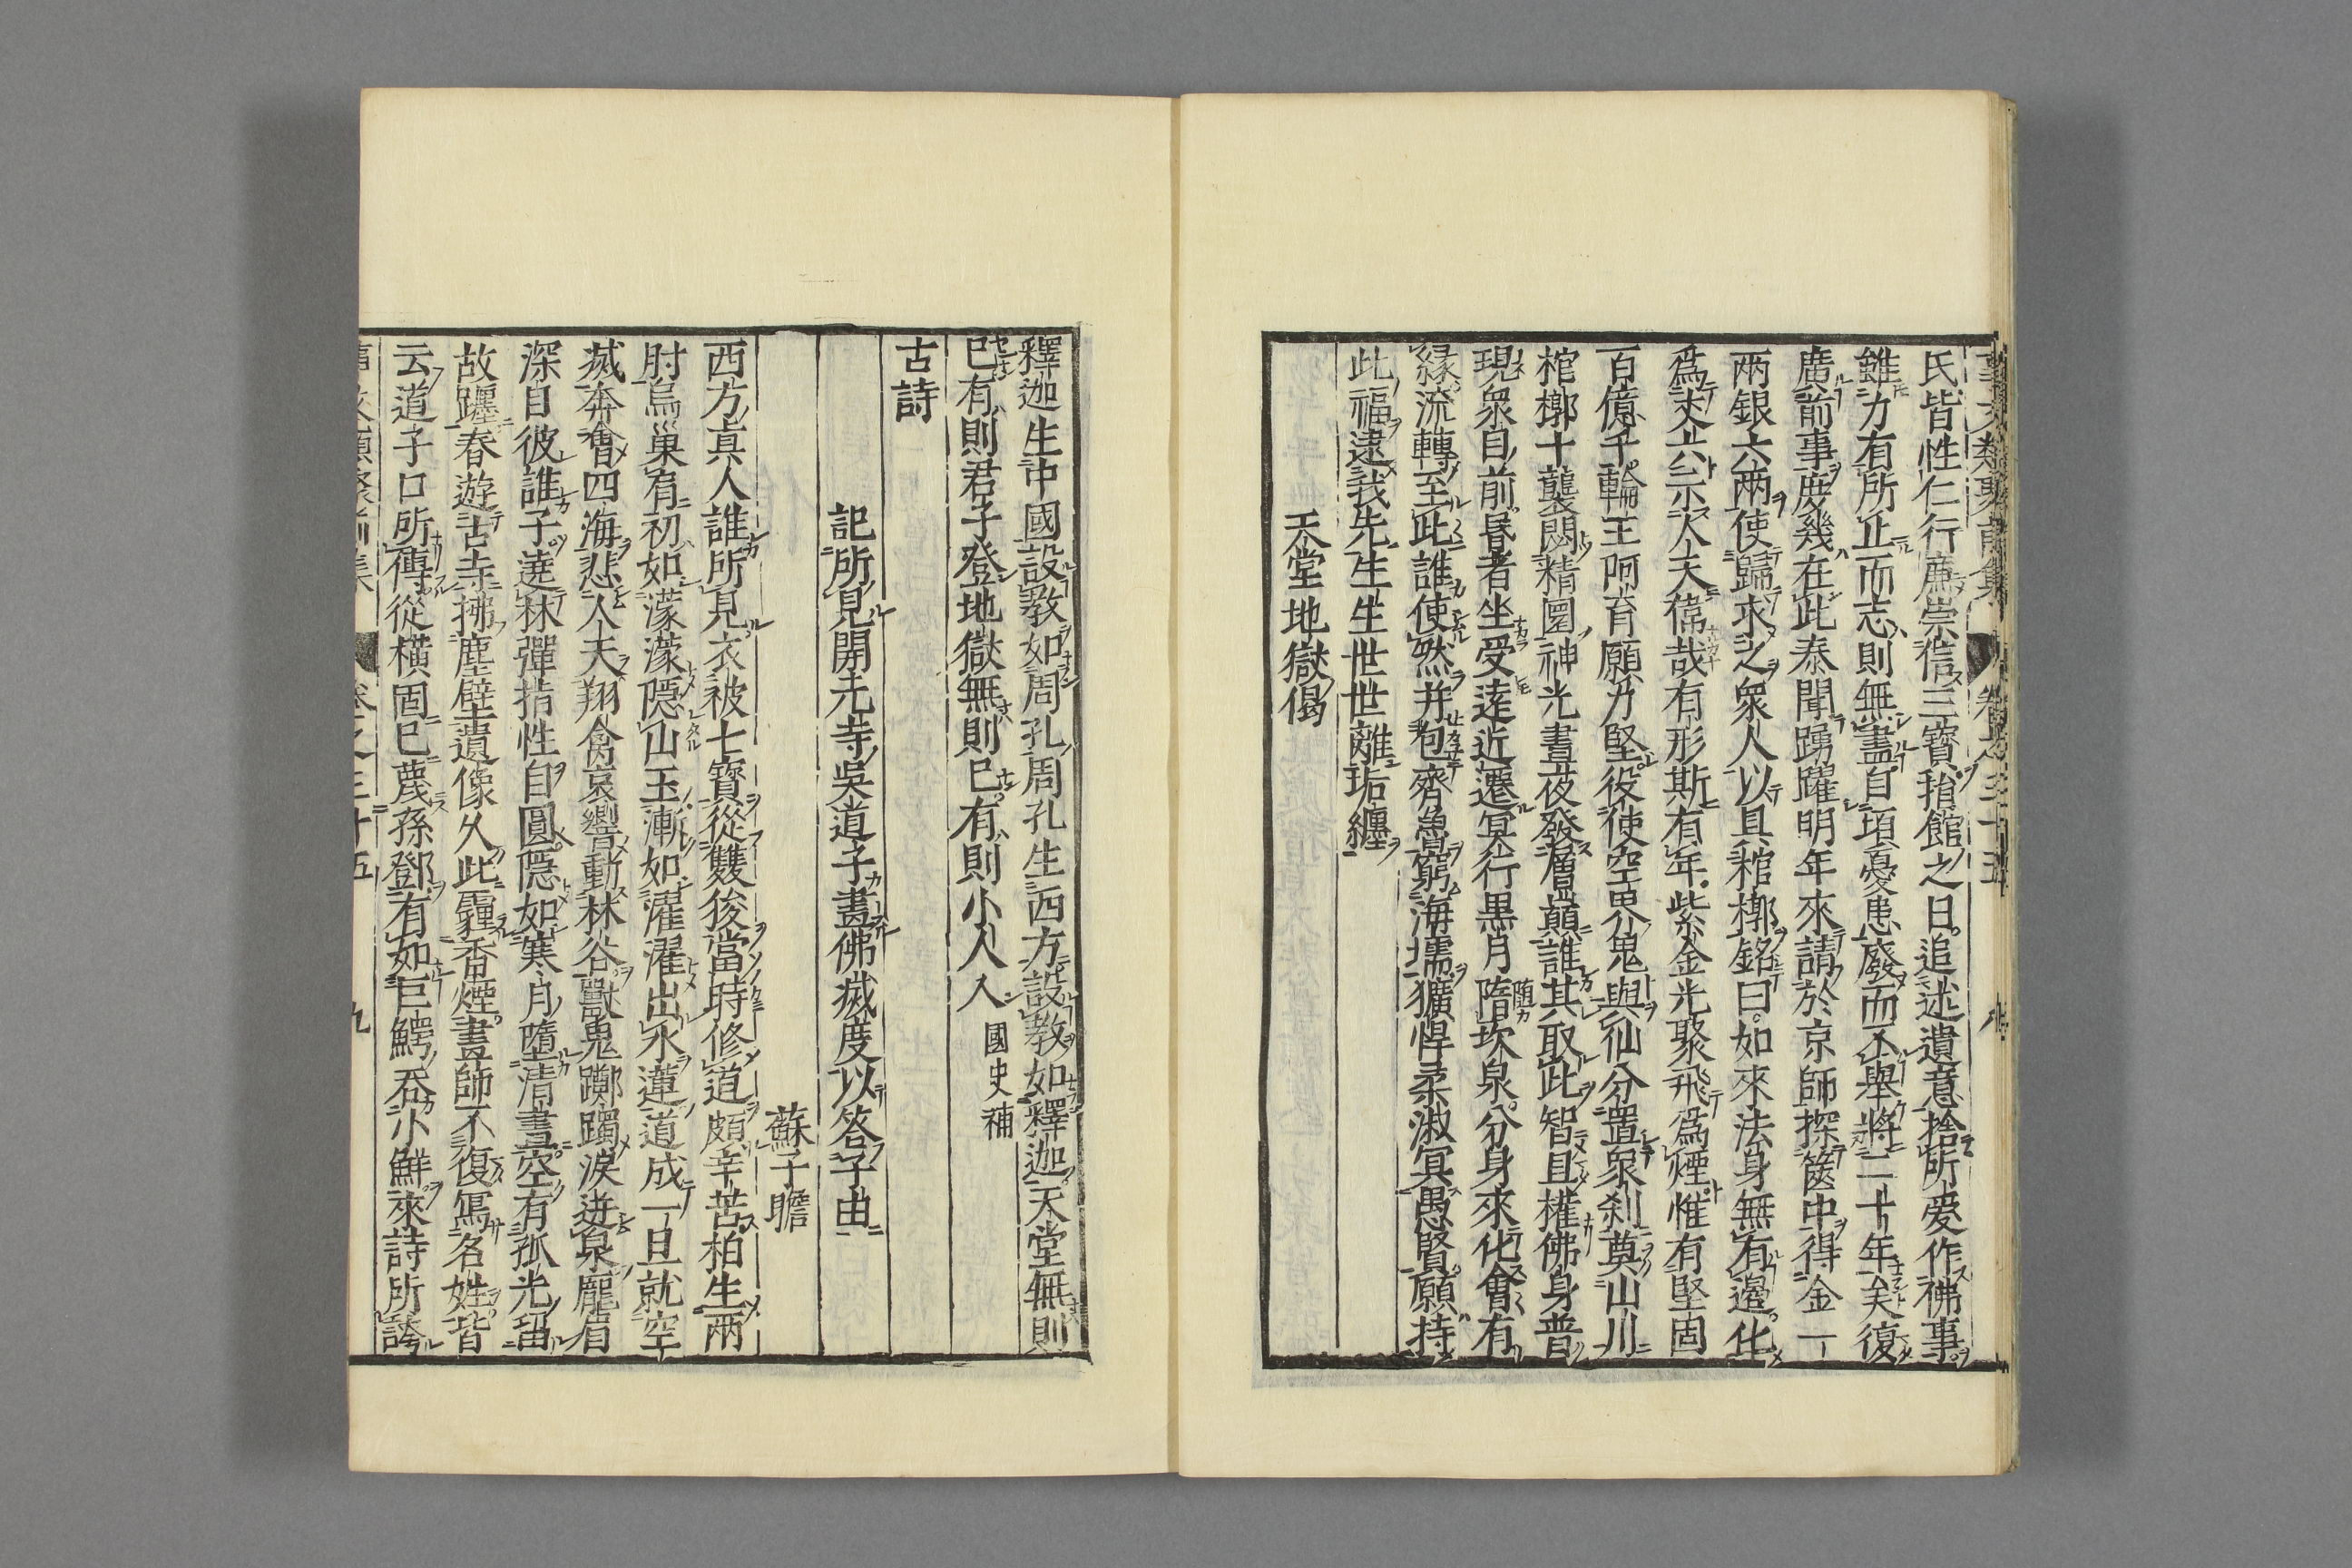 事文類聚前集 卷之三十五 九
氏皆性仁行廉崇信三寶捐館之日追述遺意捨所爱作佛事
雖力有所止而志則無盡自頃憂患廢而不舉將二十年矣復
廣前事庶幾在此泰聞踴躍明年來請於京師探篋中得金一
兩銀六兩使歸求之衆人以具棺槨銘曰如來法身無有邊化
爲丈六示人天偉哉有形斯有年紫金光聚飛爲煙惟有堅固
百億千輪王阿育願力堅役使空界鬼與仙分置衆刹奠山川
棺槨十襲閟精圜神光晝夜發層巔誰其取此智且權佛身普
現衆目前昬者坐受遠近遷冥行黒月隋坎泉分身來化會有
縁流轉至此誰使然并包齊魯窮海壖獷悍柔淑冥愚賢願持
此福逮我先生生世世離垢纏
天堂地獄偈
釋迦生中國設教如周孔周孔生西方設教如釋迦天堂無則
已有則君子登地獄無則已有則小人入 國史補
古詩
記所見開元寺吳道子畫佛滅度以答子由
蘇子瞻
西方真人誰所見衣被七寶從雙狻當時修道頗辛苦柏生兩
肘烏巢肩初如濛濛隱山玉漸如濯濯出水蓮道成一旦就空
滅奔會四海悲人天翔禽哀響動林谷獸鬼躑躅淚迸泉龐眉
深目彼誰子遶牀彈指性自圓隱如寒月墮清晝空有孤光留
故躔春遊古寺拂塵壁遺像久此霾香煙畫師不復寫名姓皆
云道子口所傳從橫固已蔑孫鄧有如巨鰐吞小鮮來詩所誇
事文類聚前集 卷之三十五 九